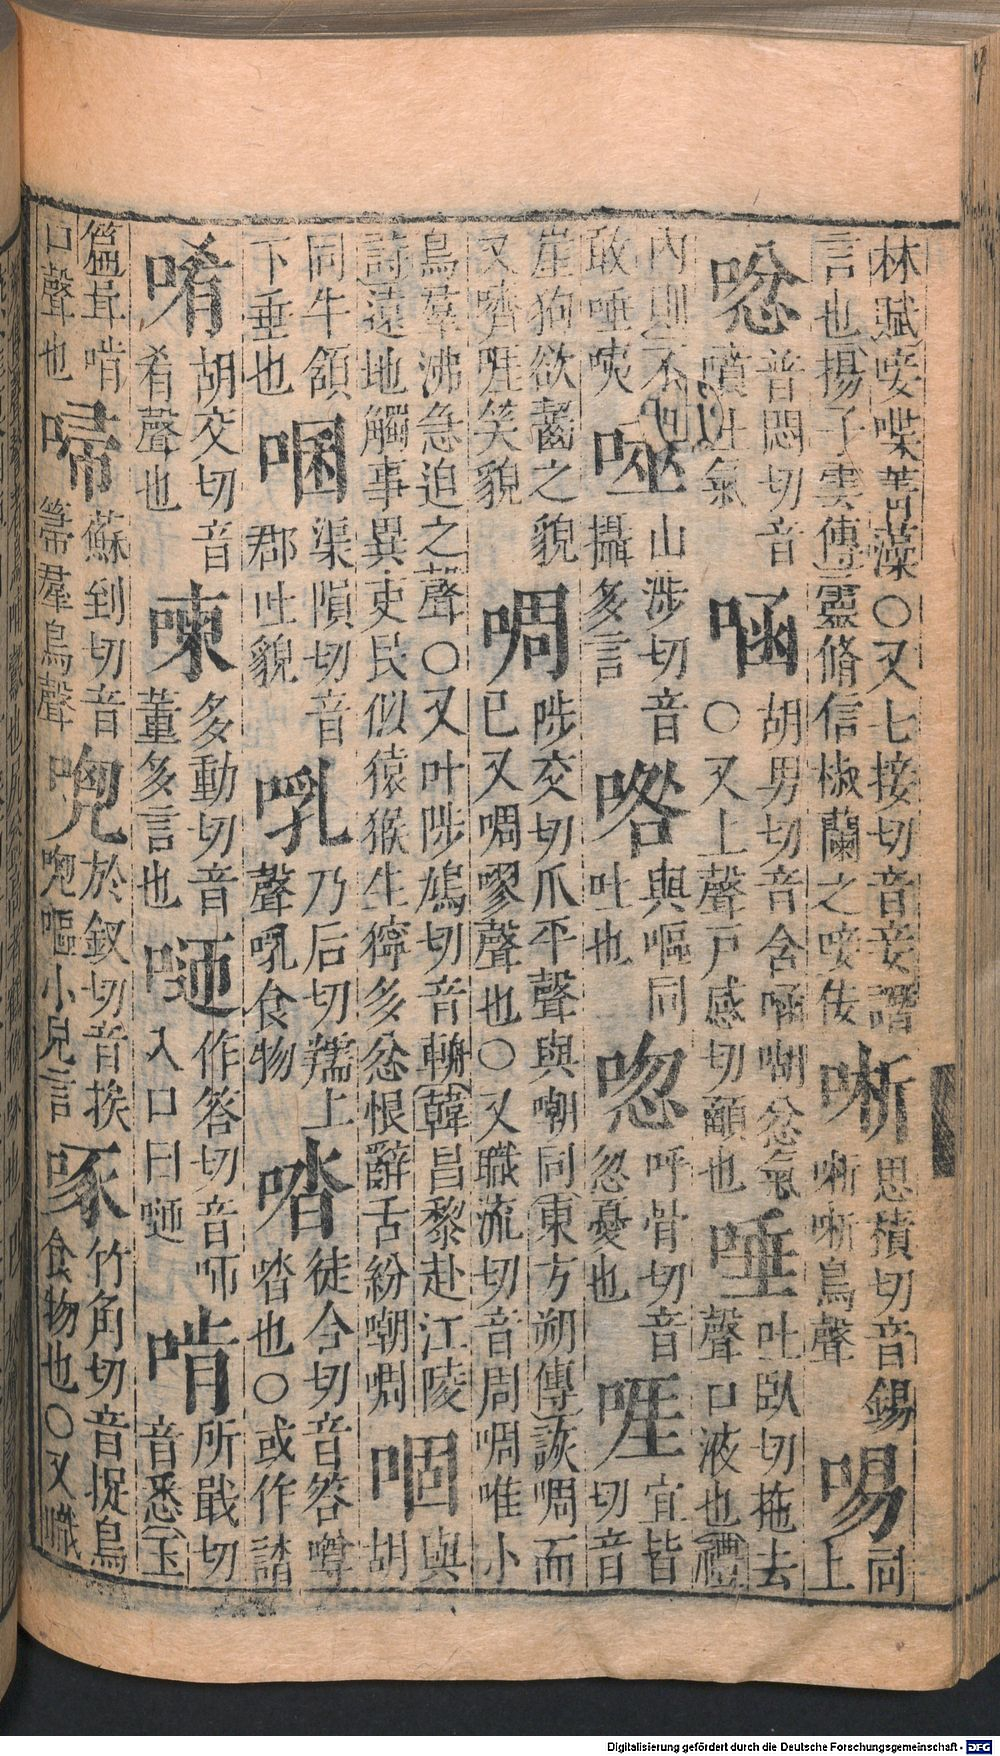 林賦唼喋菁藻〇又七接切音妾譖
言也揚子雲傳靈脩信椒蘭之唼佞
唽思積切音錫唽唽鳥聲
啺同上
㖹普悶切音噴吐氣
㖤胡男切音含㖤㗅忿氣〇又上聲戸感切顄也
唾吐臥切拖去聲口液也禮內則不敢唾洟
啑山涉切音攝多言
㗁與嘔同吐也
唿呼骨切音忽憂也
啀宜皆切音崖狗欲齧之貌又嚌啀笑貌
啁陟交切爪平聲與嘲同東方朔傳詼啁而已又啁嘐聲也〇又職流切音周啁唯小鳥羣沸急迫之聲〇又叶陟鳩切音輈韓昌黎赴江陵詩遠地觸事異吏民似猿猴生獰多忿恨辭舌紛嘲啁
啒與胡同牛領下垂也
㖥渠隕切音郡吐貌
㖠乃后切羺上聲㖠食物
㗳徒合切音沓噂㗳也〇或作誻
唷胡交切音肴聲也
㖦多動切音董多言也
㖕作答切音帀入口曰㖕
啃所戢切音悉玉篇茸啃口聲也
啼蘇到切音箒羣鳥聲
唲於釵切音挨唲嘔小兒言
啄竹角切音捉鳥食物也〇又職
Digitalisierung gefördert durch die Deutsche Forschungsgemeinschaft - DFG